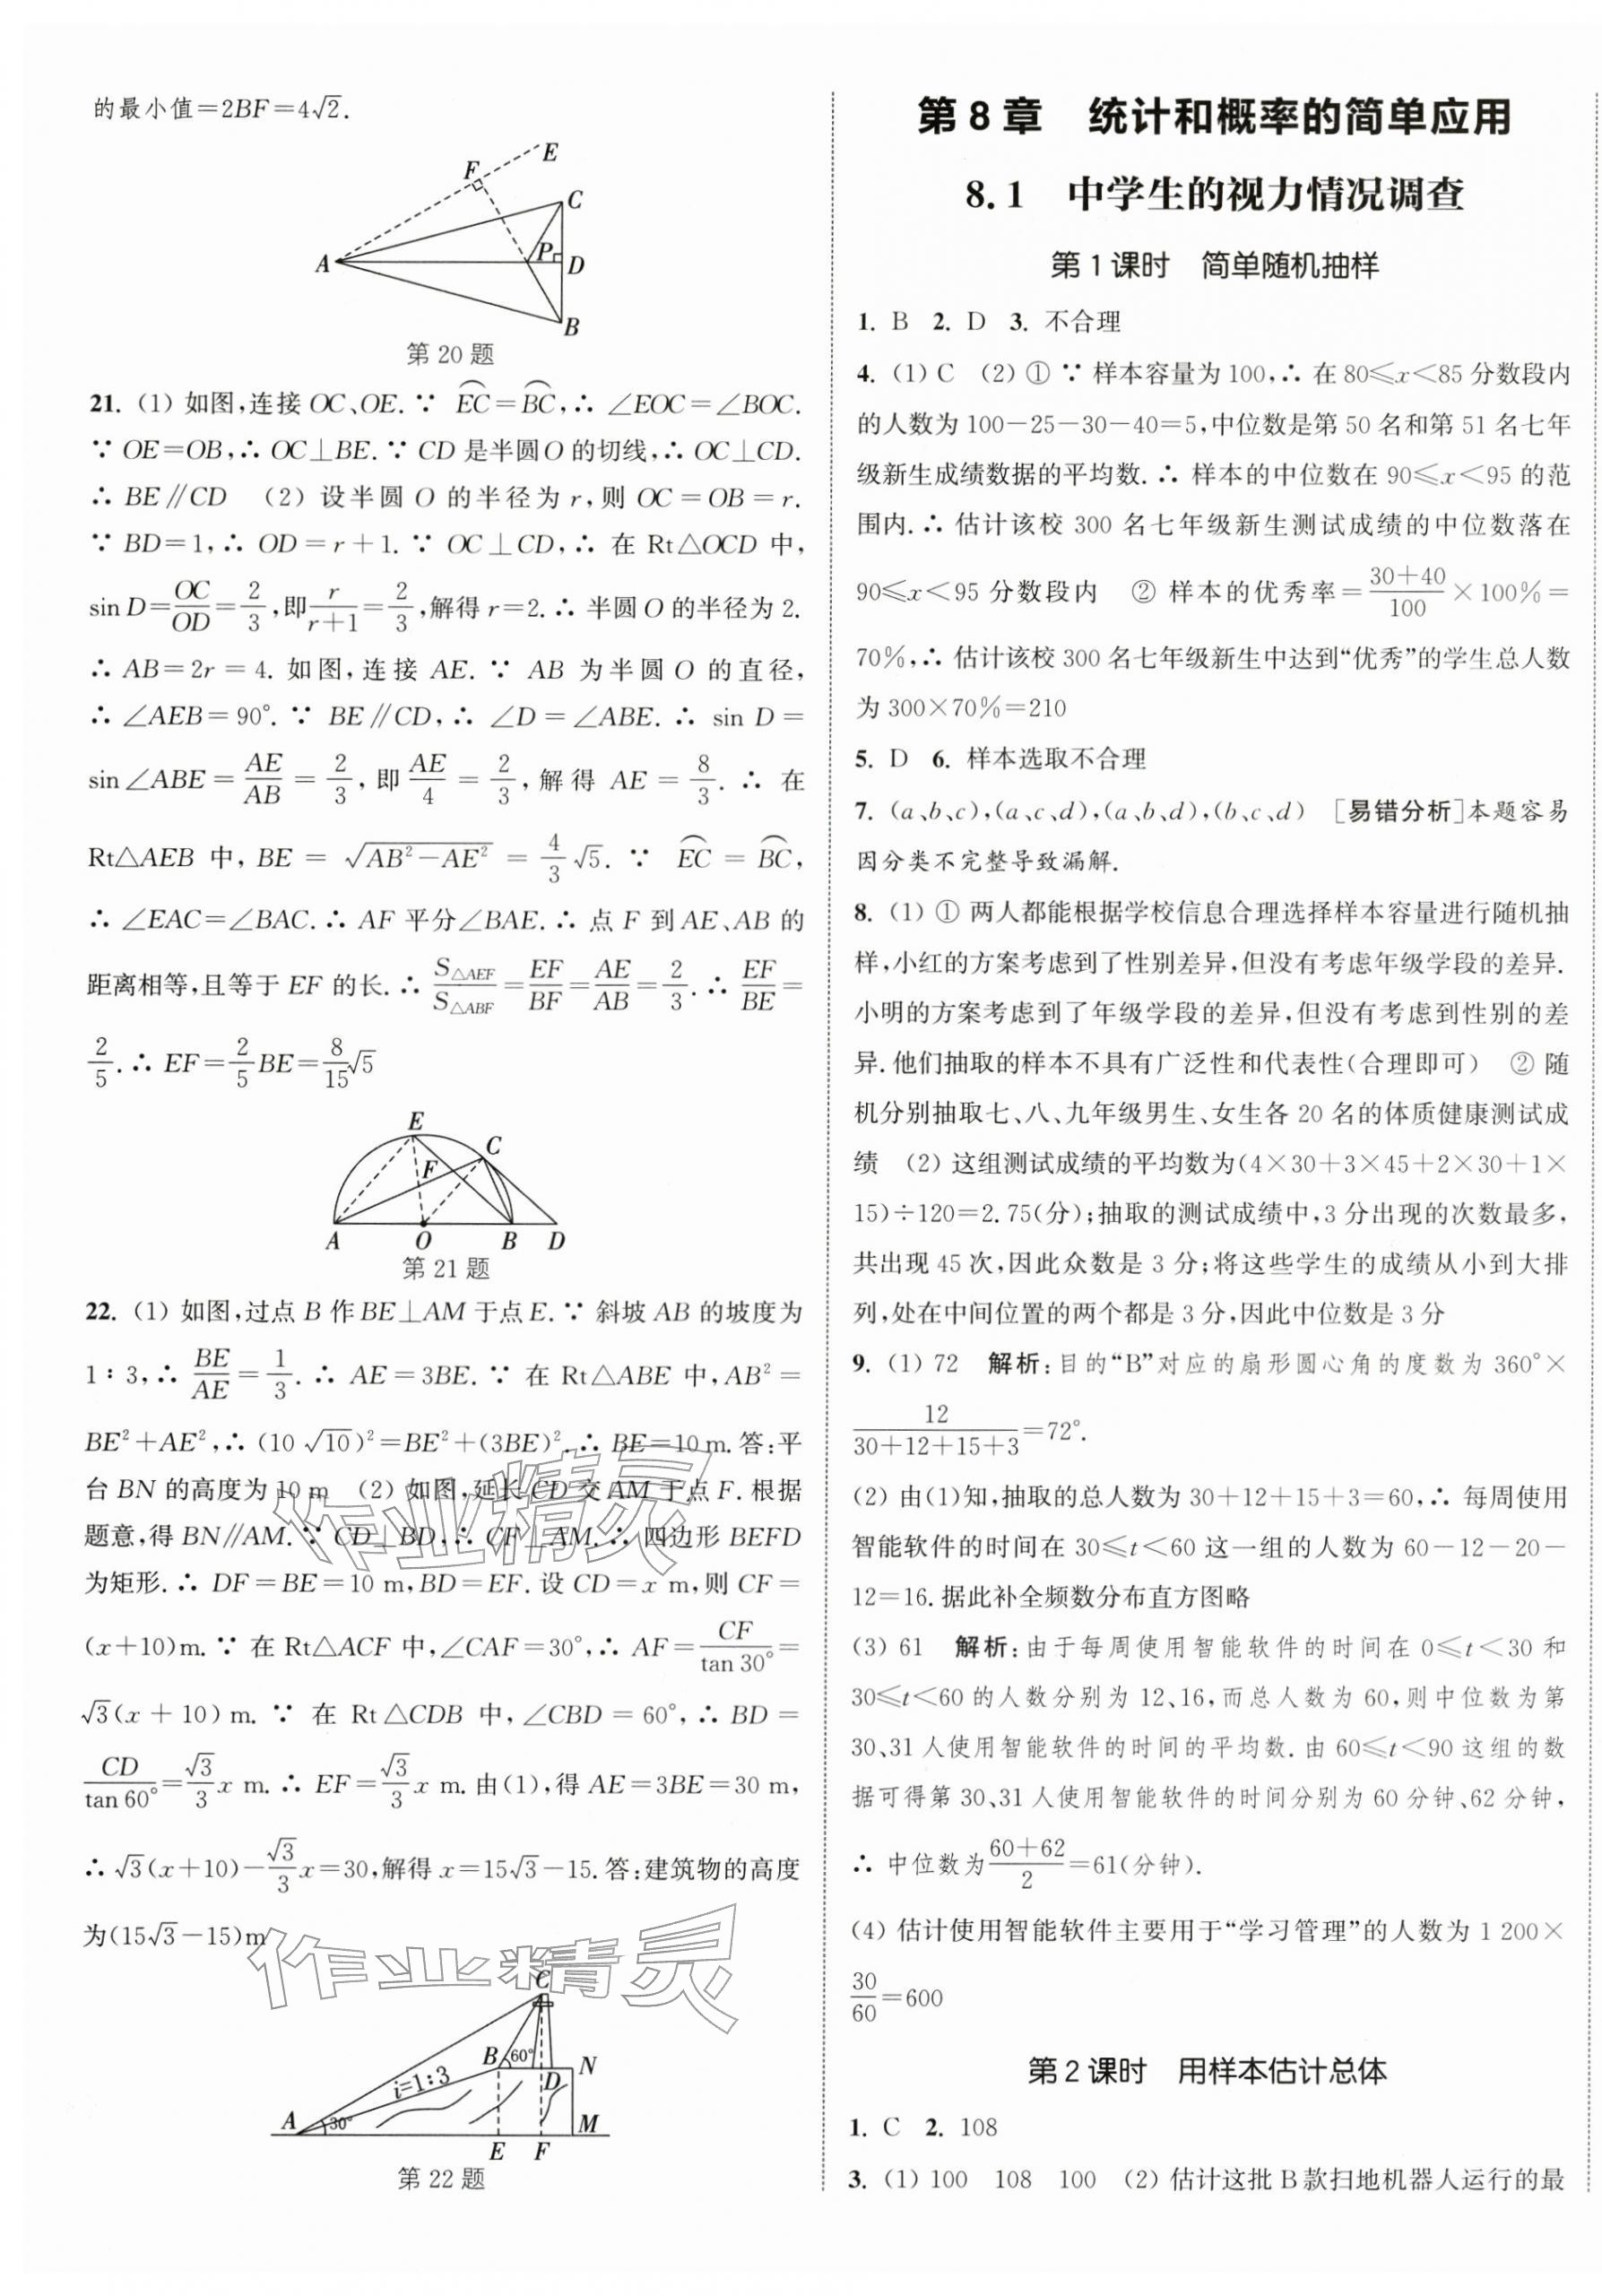 的最小值=2BF=4√2.
E
F
C
P
A
D
B
第 20 题
21. (1) 如图,连接 OC、OE. ∵ ⌒EC=⌒BC,∴ ∠EOC=∠BOC.
∵ OE=OB,∴ OC⊥BE. ∵ CD 是半圆 O 的切线,∴ OC⊥CD.
∴ BE∥CD (2) 设半圆 O 的半径为 r,则 OC=OB=r.
∵ BD=1,∴ OD=r+1. ∵ OC⊥CD,∴ 在 Rt△OCD 中,
sin D=OC/OD=2/3,即r/(r+1)=2/3,解得 r=2. ∴ 半圆 O 的半径为 2.
∴ AB=2r=4. 如图,连接 AE. ∵ AB 为半圆 O 的直径,
∴ ∠AEB=90°. ∵ BE∥CD,∴ ∠D=∠ABE. ∴ sin D=
sin∠ABE=AE/AB=2/3,即AE/4=2/3,解得 AE=8/3. ∴ 在
Rt△AEB 中,BE=√(AB²-AE²)=4/3√5. ∵ ⌒EC=⌒BC,
∴ ∠EAC=∠BAC. ∴ AF 平分∠BAE. ∴ 点 F 到 AE、AB 的
距离相等,且等于 EF 的长. ∴ S△AEF/S△ABF=EF/BF=AE/AB=2/3. ∴ EF/BE=
2/5. ∴ EF=2/5BE=8/15√5
E
C
F
A O B D
第 21 题
22. (1) 如图,过点 B 作 BE⊥AM 于点 E. ∵ 斜坡 AB 的坡度为
1∶3,∴ BE/AE=1/3. ∴ AE=3BE. ∵ 在 Rt△ABE 中,AB²=
BE²+AE²,∴ (10√10)²=BE²+(3BE)². ∴ BE=10 m. 答:平
台 BN 的高度为 10 m (2) 如图,延长 CD 交 AM 于点 F. 根据
题意,得 BN∥AM. ∵ CD⊥BD,∴ CF⊥AM. ∴ 四边形 BEFD
为矩形. ∴ DF=BE=10 m,BD=EF. 设 CD=x m,则 CF=
(x+10)m. ∵ 在 Rt△ACF 中,∠CAF=30°,∴ AF=CF/tan 30°=
√3(x+10) m. ∵ 在 Rt△CDB 中,∠CBD=60°,∴ BD=
CD/tan 60°=√3/3x m. ∴ EF=√3/3x m. 由(1),得 AE=3BE=30 m,
∴ √3(x+10)-√3/3x=30,解得 x=15√3-15. 答:建筑物的高度
为(15√3-15)m
作业精灵
作业精灵
C
B 60° N
D
i=1:3
A 30° M
E F
第 22 题
第 8 章 统计和概率的简单应用
8.1 中学生的视力情况调查
第 1 课时 简单随机抽样
1. B 2. D 3. 不合理
4. (1) C (2) ① ∵ 样本容量为 100,∴ 在 80≤x<85 分数段内
的人数为 100-25-30-40=5,中位数是第 50 名和第 51 名七年
级新生成绩数据的平均数. ∴ 样本的中位数在 90≤x<95 的范
围内. ∴ 估计该校 300 名七年级新生测试成绩的中位数落在
90≤x<95 分数段内 ② 样本的优秀率=(30+40)/100×100%=
70%,∴ 估计该校 300 名七年级新生中达到“优秀”的学生总人数
为 300×70%=210
5. D 6. 样本选取不合理
7. (a、b、c),(a、c、d),(a、b、d),(b、c、d) [易错分析]本题容易
因分类不完整导致漏解.
8. (1) ① 两人都能根据学校信息合理选择样本容量进行随机抽
样,小红的方案考虑到了性别差异,但没有考虑年级学段的差异.
小明的方案考虑到了年级学段的差异,但没有考虑到性别的差
异. 他们抽取的样本不具有广泛性和代表性(合理即可) ② 随
机分别抽取七、八、九年级男生、女生各 20 名的体质健康测试成
绩 (2) 这组测试成绩的平均数为(4×30+3×45+2×30+1×
15)÷120=2.75(分);抽取的测试成绩中,3 分出现的次数最多,
共出现 45 次,因此众数是 3 分;将这些学生的成绩从小到大排
列,处在中间位置的两个都是 3 分,因此中位数是 3 分
9. (1) 72 解析:目的“B”对应的扇形圆心角的度数为 360°×
12/(30+12+15+3)=72°.
(2) 由(1)知,抽取的总人数为 30+12+15+3=60,∴ 每周使用
智能软件的时间在 30≤t<60 这一组的人数为 60-12-20-
12=16. 据此补全频数分布直方图略
(3) 61 解析:由于每周使用智能软件的时间在 0≤t<30 和
30≤t<60 的人数分别为 12、16,而总人数为 60,则中位数为第
30、31 人使用智能软件的时间的平均数. 由 60≤t<90 这组的数
据可得第 30、31 人使用智能软件的时间分别为 60 分钟、62 分钟,
∴ 中位数为(60+62)/2=61(分钟).
(4) 估计使用智能软件主要用于“学习管理”的人数为 1 200×
30/60=600
第 2 课时 用样本估计总体
1. C 2. 108
3. (1) 100 108 100 (2) 估计这批 B 款扫地机器人运行的最